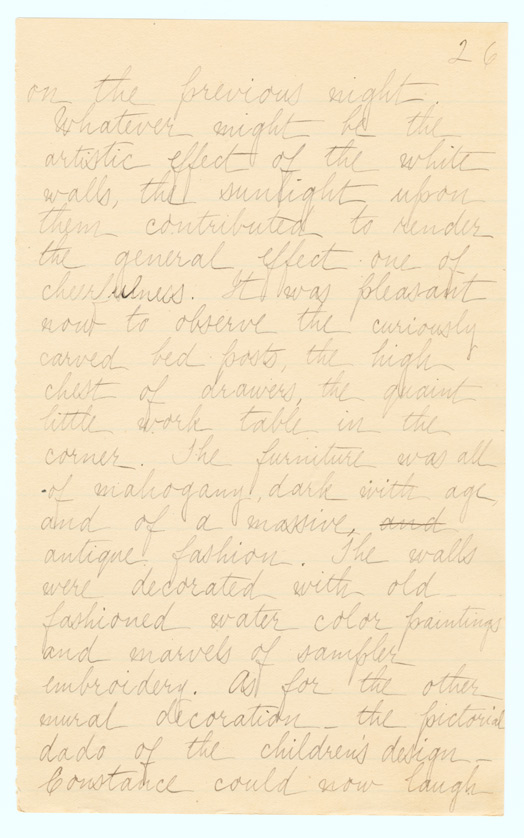 26
on the previous night.
Whatever might be the
artistic effect of the white
walls, the sunlight upon
them contributed to render
the general effect one of
cheerfulness. It was pleasant
now to observe the curiously
carved bed posts, the high
chest of drawers, the quaint
little work table in the
corner. The furniture was all
of mahogany, dark with age,
and of a massive, and
antique fashion. The walls
were decorated with old
fashioned water color paintings
and marvels of sampler
embroidery. As for the other
mural decoration - the pictorial
dado of the children's design -
Constance could now laugh